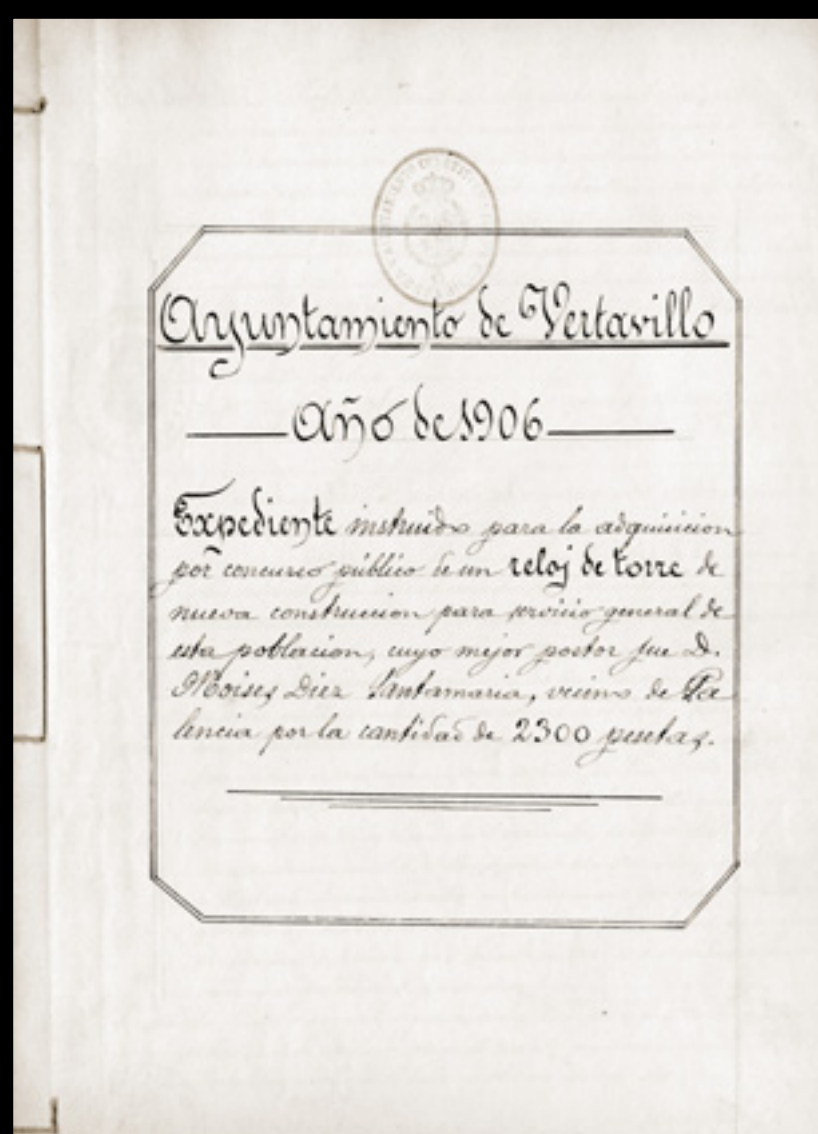 Ayuntamiento de Vertavillo
Año de 1906
Expediente instruido para la adquisicion
por concurso público de un reloj de torre de
nueva construccion para servicio general de
esta poblacion, cuyo mejor postor fue D.
Moises Diez Santamaria, vecino de Pa
lencia por la cantidad de 2300 pesetas.